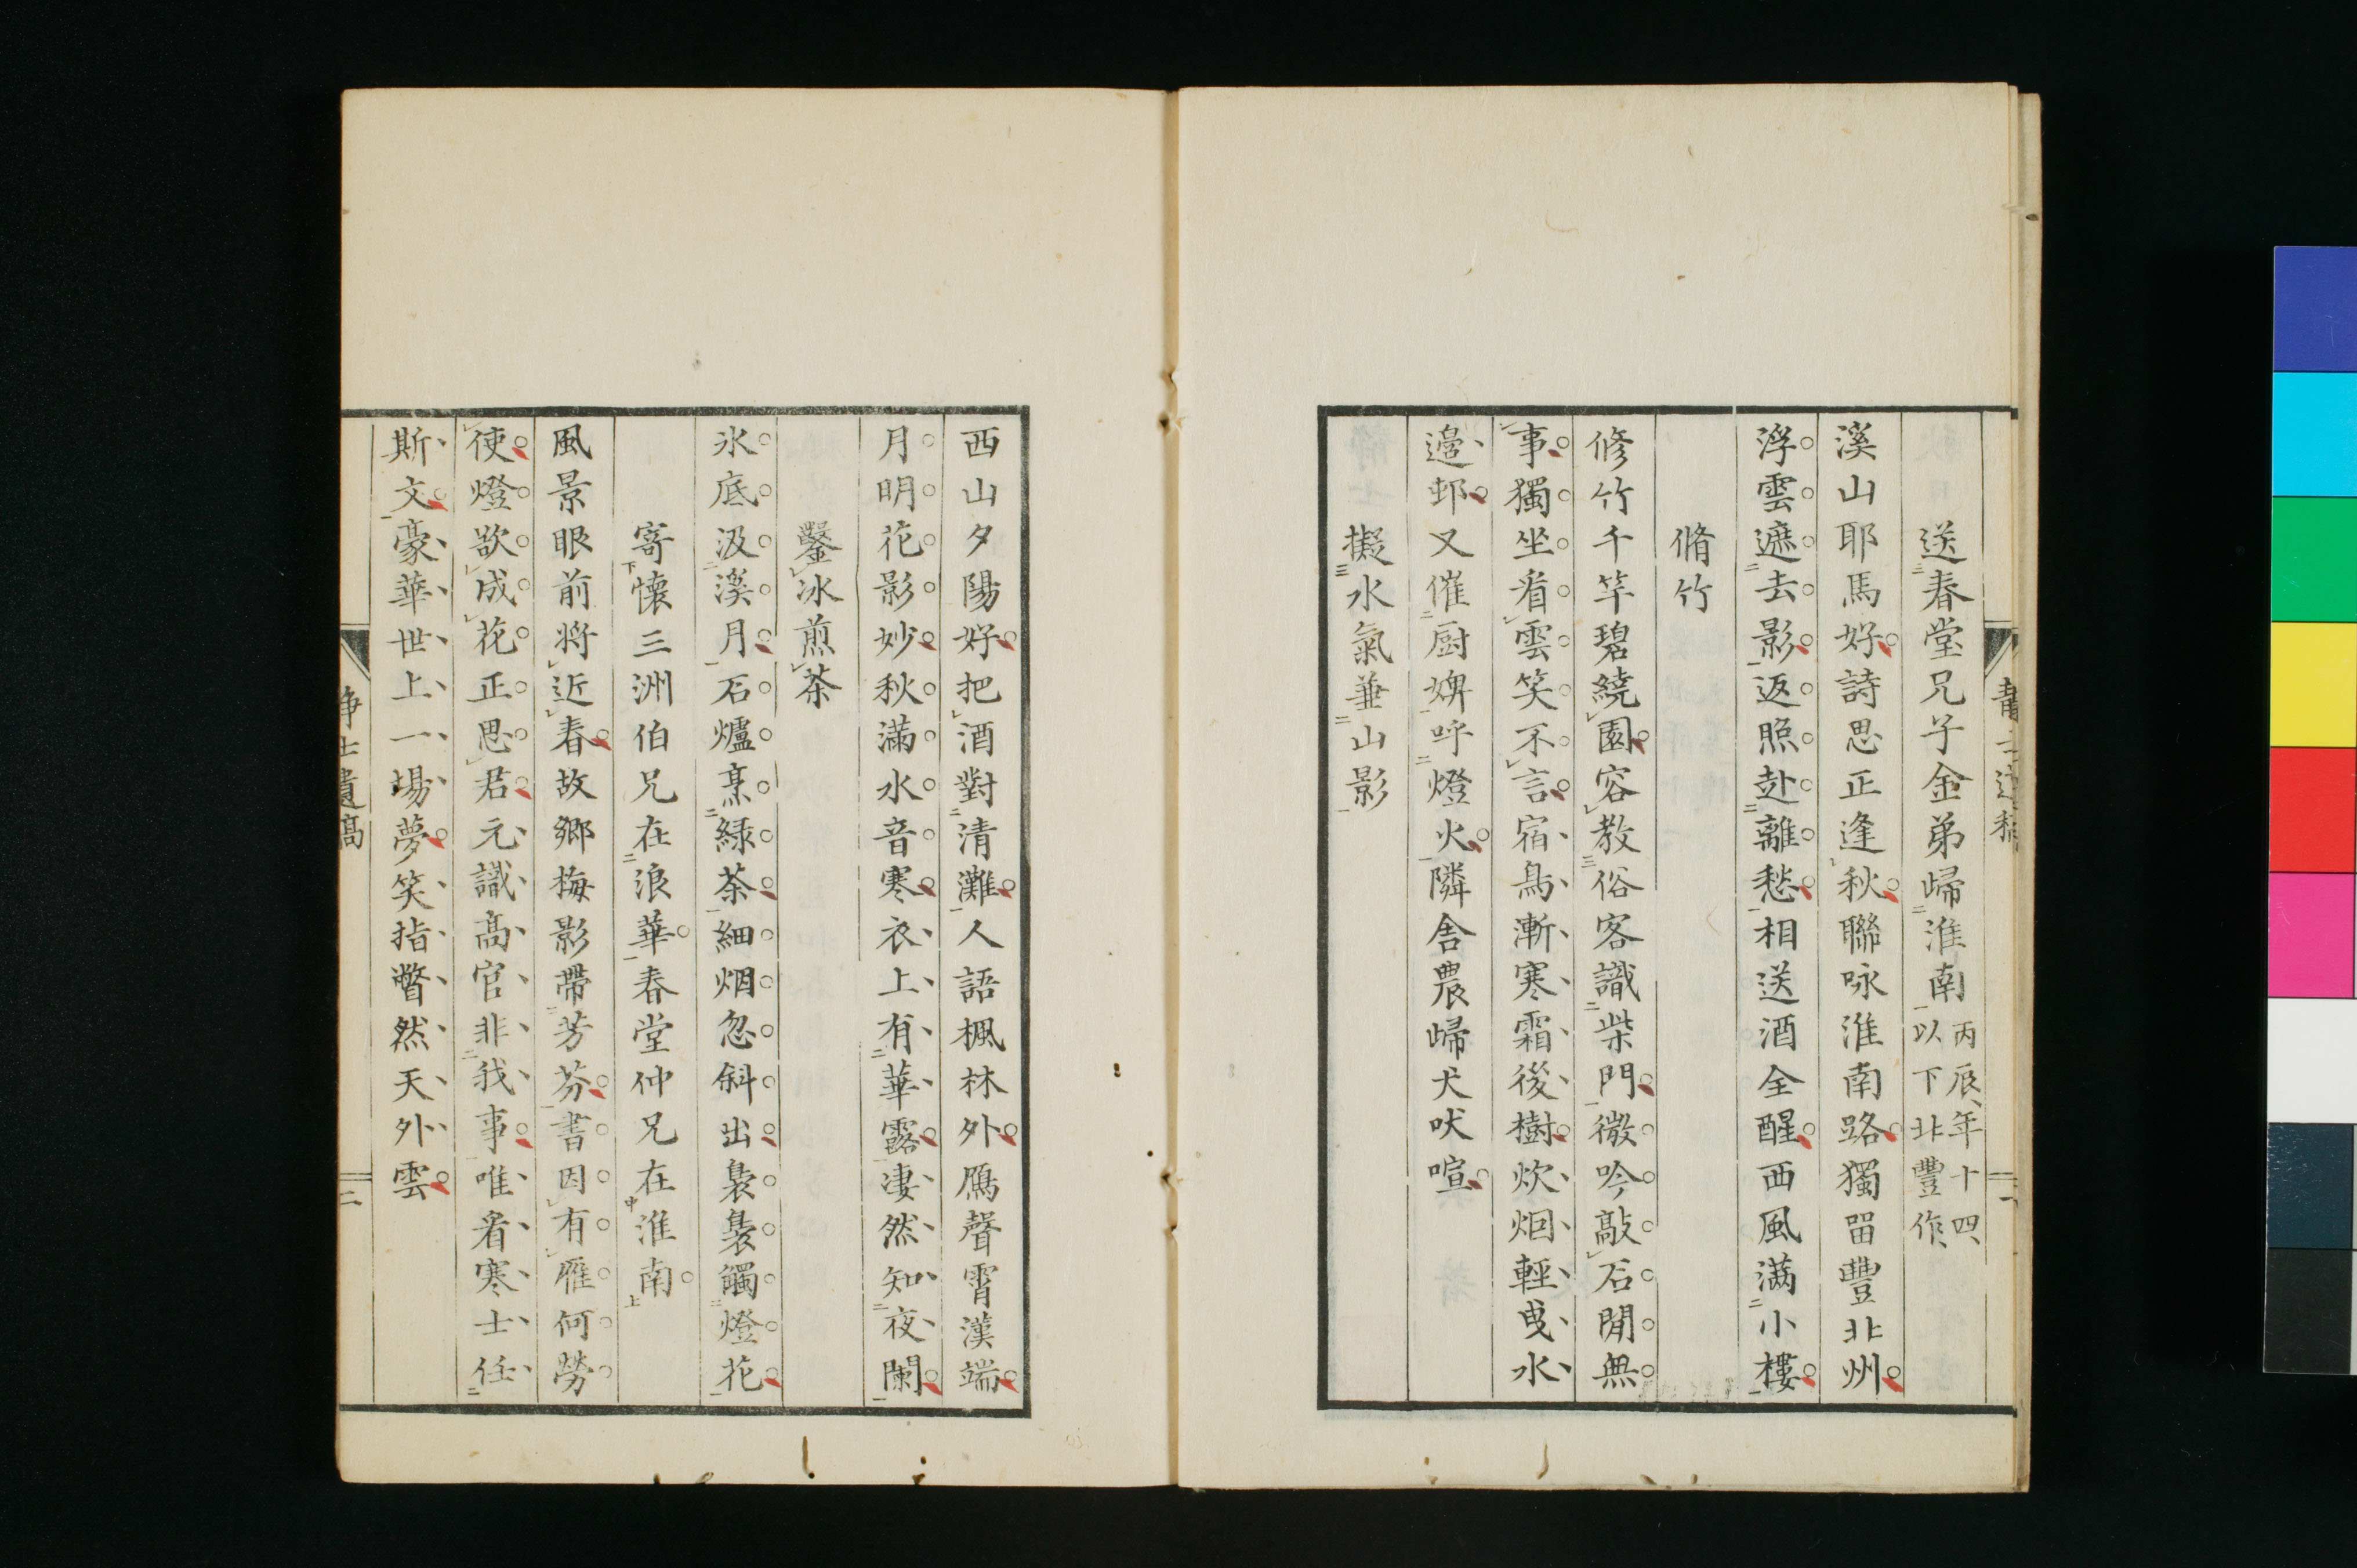 送春堂兄子金弟歸淮南 丙辰、年十四、以下北豐作、
溪山耶馬好詩思正逢秋聯咏淮南路獨留豐北州
浮雲遮去影返照赴離愁相送酒全醒西風滿小樓
脩竹
修竹千竿碧繞園容教俗客識柴門微吟敲石閒無
事獨坐看雲笑不言宿鳥漸寒霜後樹炊烟輕曳水
邉邨又催厨婢呼燈火隣舍農歸犬吠喧
擬水氣兼山影
西山夕陽好把酒對清灘人語楓林外鴈聲霄漢端
月明花影妙秋滿水音寒衣上有華露凄然知夜闌
鑿冰煎茶
氷底汲溪月石爐烹緑茶細烟忽斜出裊裊觸燈花
寄懷三洲伯兄在浪華春堂仲兄在淮南
風景眼前将近春故鄉梅影帶芳芬書因有雁何勞
使燈欲成花正思君元識高官非我事唯看寒士任
斯文豪華世上一場夢笑指瞥然天外雲
二